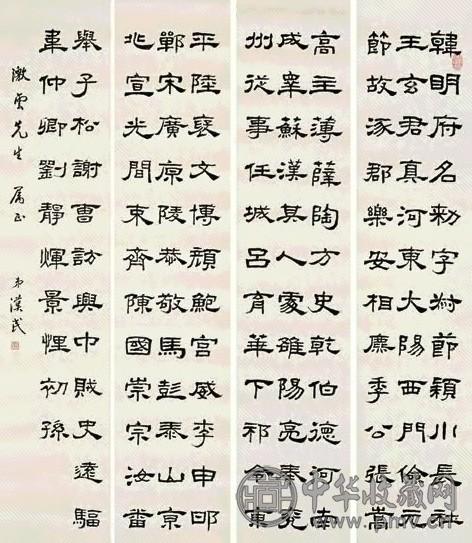 韓明府名勑字叔節潁川長社
王玄君真河東大陽西門儉元
節故涿郡樂安相廉季公張嵩
高主薄薛陶方史乾伯德河南
成睾蘇漢其人處雒陽亮奉兗
州從事任城呂育華下邳令東
平陸襃文博頏鮑宮威李申邯
鄲宋廣原陵恭敬馬彭泰山京
北宣光間束齊陳國崇宗汝畨
舉子松謝曹訪興中賊史遠驅
車仲卿劉靜煇景悝初孫
澂雲先生屬正 弟漢民
中华收藏网